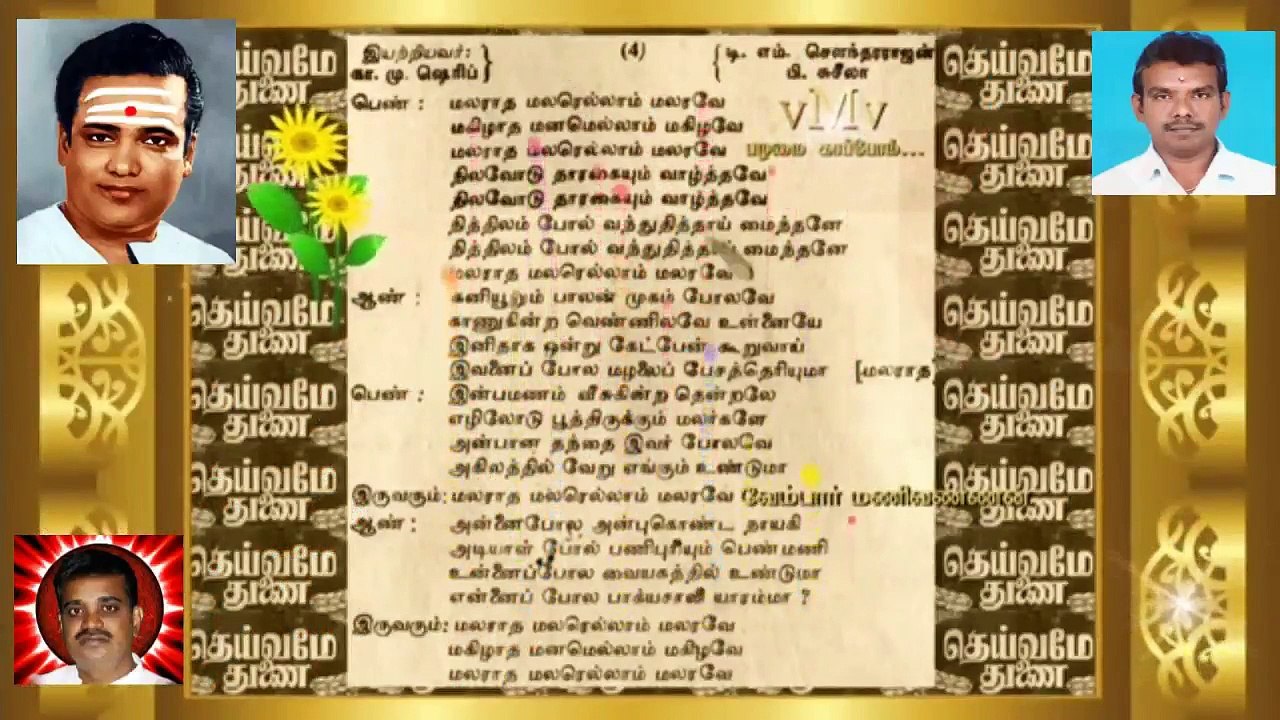 தெய்வமே துணை
இயற்றியவர்: (4) டி. எம். சௌந்தரராஜன்
கா. மு. ஷெரிப் பி. சுசீலா
பெண் : மலராத மலரெல்லாம் மலரவே
மகிழாத மனமெல்லாம் மகிழவே
மலராத மலரெல்லாம் மலரவே
நிலவோடு தாரகையும் வாழ்த்தவே
நிலவோடு தாரகையும் வாழ்த்தவே
நித்திலம் போல் வந்துதித்தாய் மைந்தனே
நித்திலம் போல் வந்துதித்தாய் மைந்தனே
மலராத மலரெல்லாம் மலரவே
ஆண் : கனியூறும் பாலன் முகம் போலவே
காணுகின்ற வெண்ணிலவே உன்னையே
இனிதாக ஒன்று கேட்பேன் கூறுவாய்
இவனைப் போல மழலைப் பேசத்தெரியுமா [மலராத
பெண் : இன்பமணம் வீசுகின்ற தென்றலே
எழிலோடு பூத்திருக்கும் மலர்களே
அன்பான தந்தை இவர் போலவே
அகிலத்தில் வேறு எங்கும் உண்டுமா
இருவரும்: மலராத மலரெல்லாம் மலரவே
ஆண் : அன்னைபோல அன்புகொண்ட நாயகி
அடியாள் போல் பணிபுரியும் பெண்மணி
உன்னைப்போல வையகத்தில் உண்டுமா
என்னைப் போல பாக்யசாலி யாரம்மா ?
இருவரும்: மலராத மலரெல்லாம் மலரவே
மகிழாத மனமெல்லாம் மகிழவே
மலராத மலரெல்லாம் மலரவே
vMv
வேம்பார் மணிவண்ணன்